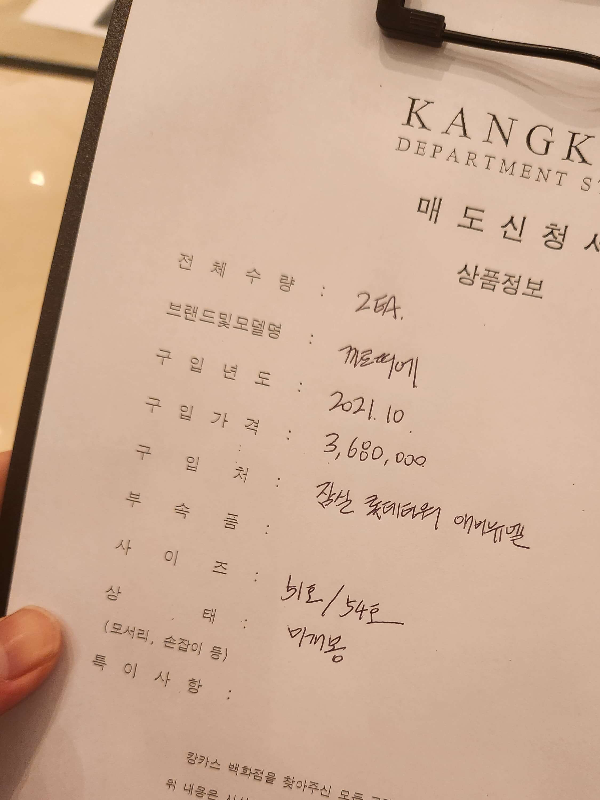 KANGK
DEPARTMENT ST
매도신청서
상품정보
전체수량 : 2EA.
브랜드및모델명 : 까르띠에
구입년도 : 2021. 10.
구입가격 : 3,680,000
구입처 : 잠실 롯데타워 애비뉴엘
부속품 :
사이즈 : 51호/54호
상태 : 미개봉
(모서리, 손잡이 등)
특이사항 :
캉카스 백화점을 찾아주신 모든
위 내용은